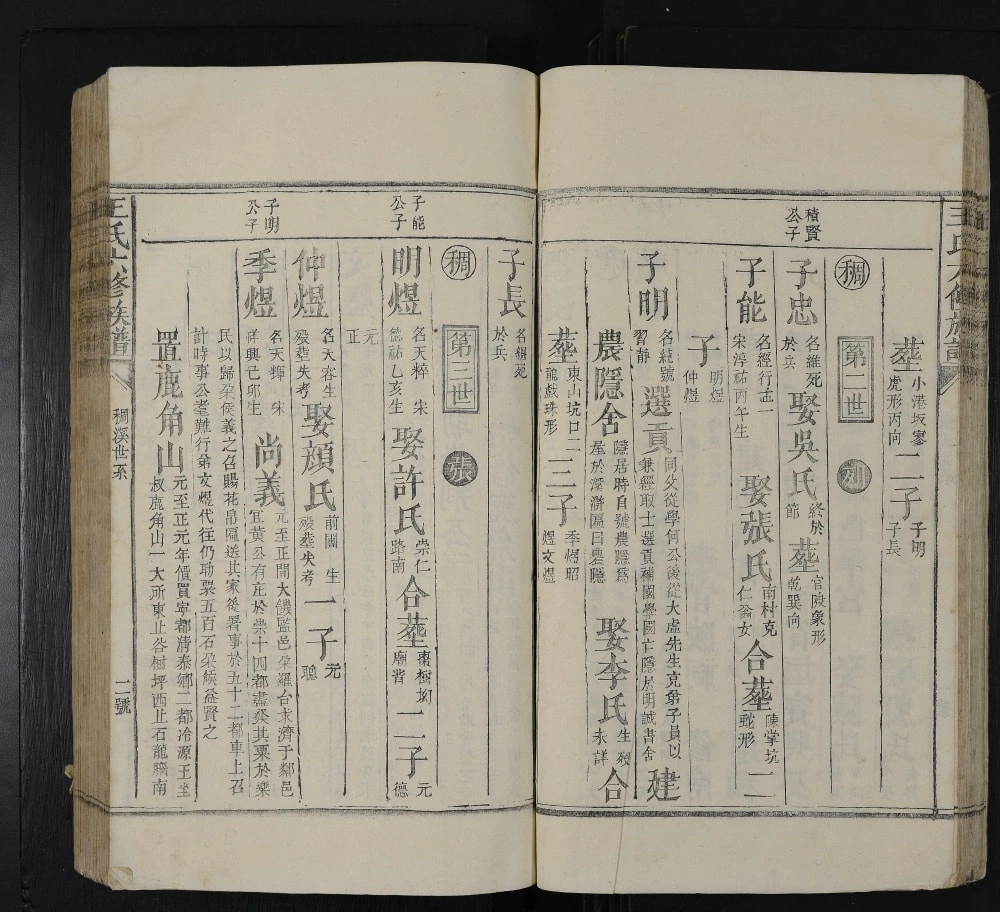 積賢
公子
葬 小港坂寥 虎形丙向 二子 子明 子長
稠 第二世 列
子忠 名維死 於兵 娶吳氏 終於 節 葬 官陂象形 乾巽向
子能 名經行 宋淳祐丙午生 娶張氏 南村克 仁翁女 合葬 陳掌坑 蛇形 二
子 明煜 仲煜
子明 名統號 習靜 選貢 同父從學何公後從大虛先生克弟子員以 兼經取士選貢補國學國亡隱於明誠書舍 建
農隱舍 隱居時自號農隱爲 屋於 滸匾曰農隱 娶李氏 生歿 未詳 合
葬 東山坑口二 龍戲珠形 三子 季煜昭 煜文煜
子能
公子
子明
公子
子長 名綱死 於兵
稠 第三世 張
明煜 名天粹 宋 德祐乙亥生 娶許氏 崇仁 路南 合葬 棗樹坳 廟背 二子 元 德
元
正
仲煜 名天容生 歿葬失考 娶顔氏 前圃 生 歿葬失考 一子 元 聰
季煜 名天輝 宋 祥興己卯生 尚義 元至正間大饑監邑朶羅台求濟于鄰邑 宜黃公有庄於崇十四都盡發其粟於樂
民以歸朶侯義之召賜花帛匾送其家後署事於五十二都車上召
計時事公耄難行弟文煜代往仍助粟五百石朶候益賢之
置鹿角山 元至正元年價買寧都清泰鄉二都冷源王坐 叔鹿角山一大所東止谷樹坪西止石龍腦南
王氏六修族譜
稠溪世系
二號